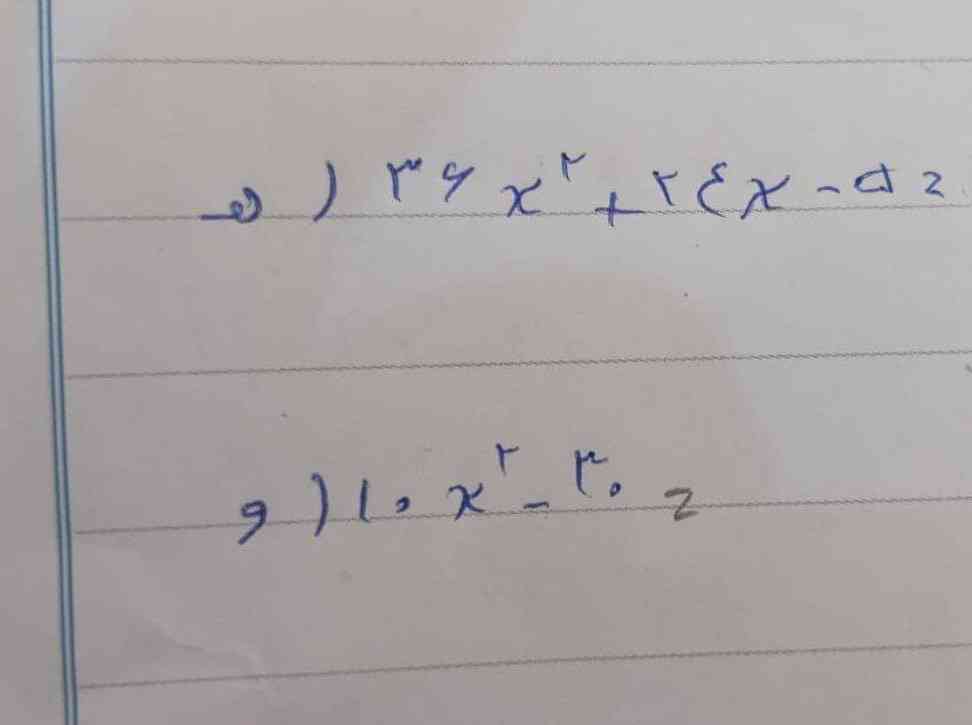 ه) ۳۶x^۲ + ۲۴x - ۵ =
و) ۱۰x^۲ - ۳۰ =